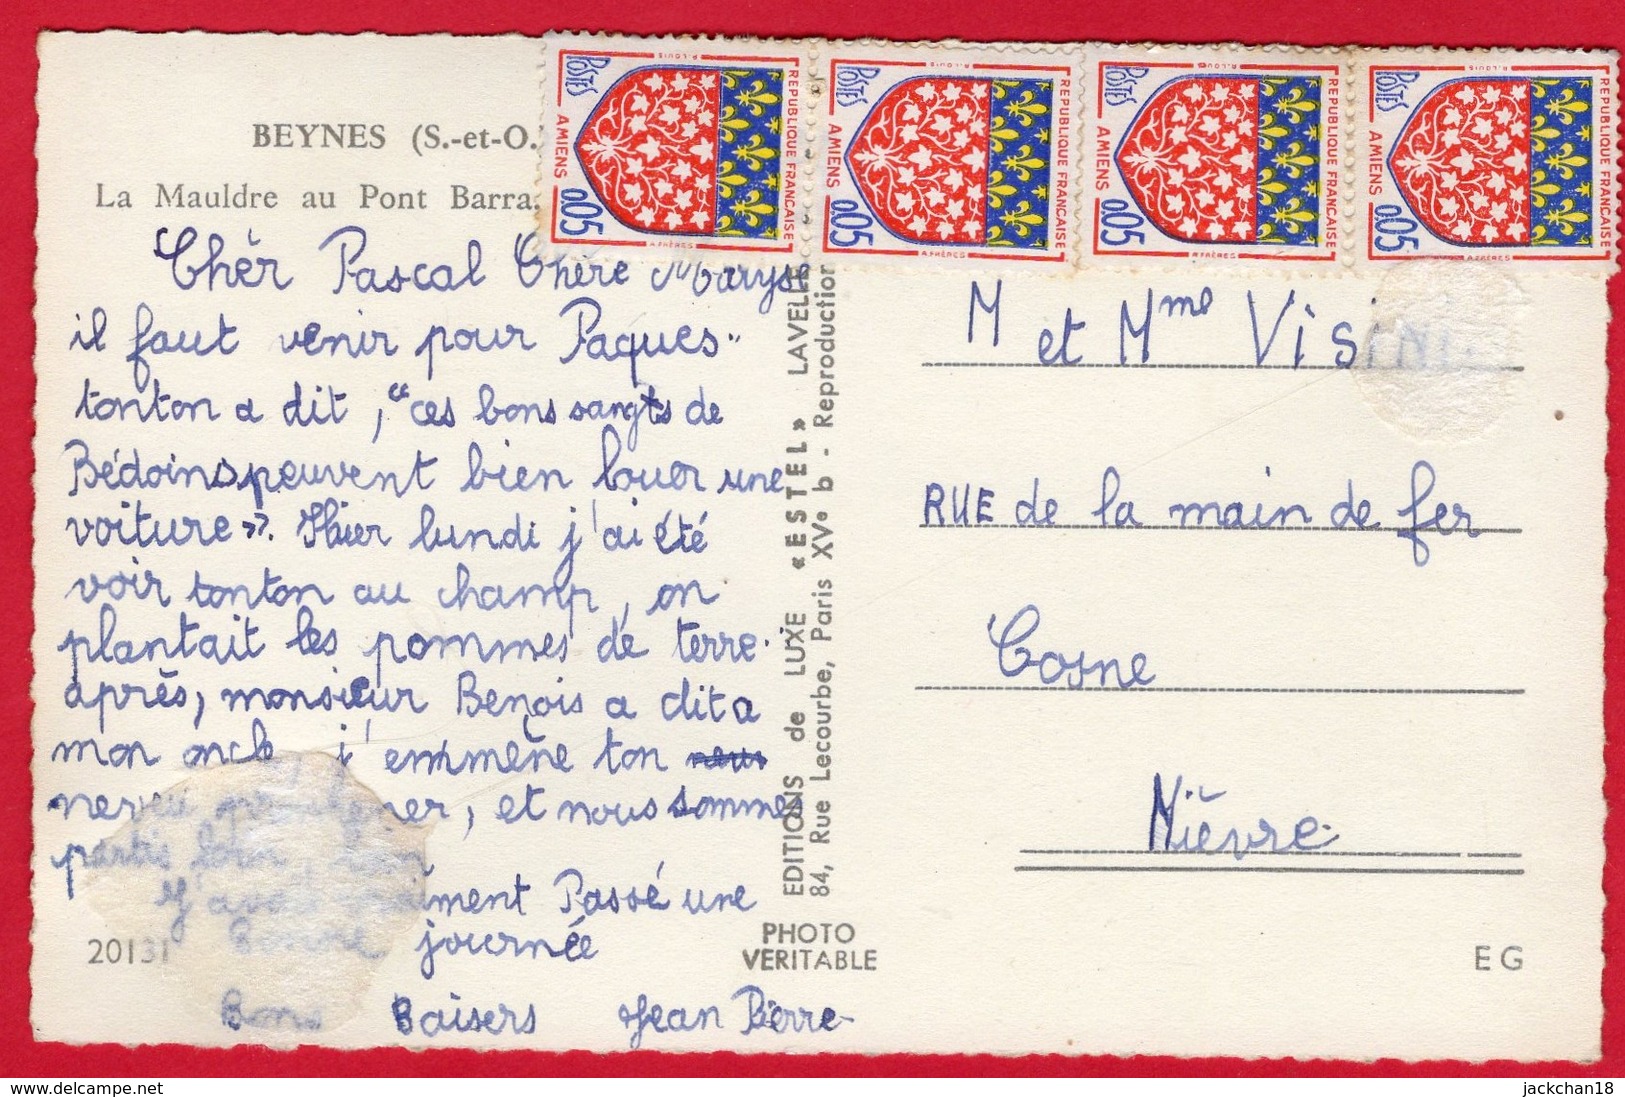 BEYNES (S.-et-O.
La Mauldre au Pont Barra
Chèr Pascal Chère Maryse
il faut venir pour Paques..
tonton a dit, "ces bons sangts de
Bédoins peuvent bien louer une
voiture". Hier lundi j'ai été
voir tonton au champ, on
plantait les pommes de terre.
après, monsieur Benois a dit a
mon oncle j'emmène ton
neveu promener, et nous sommes
partis loin, loin
J'avais vraiment Passé une
bonne journée
Bons Baisers Jean Pierre
20131
POSTES
REPUBLIQUE FRANÇAISE
AMIENS
0,05
R. LOUIS
A. FRÈRES
POSTES
REPUBLIQUE FRANÇAISE
AMIENS
0,05
R. LOUIS
A. FRÈRES
POSTES
REPUBLIQUE FRANÇAISE
AMIENS
0,05
R. LOUIS
A. FRÈRES
POSTES
REPUBLIQUE FRANÇAISE
AMIENS
0,05
R. LOUIS
A. FRÈRES
EDITIONS de LUXE «ESTEL» LAVELLE
84, Rue Lecourbe, Paris XVe b - Reproduction
PHOTO
VERITABLE
M et Mme Visini
RUE de la main de fer
Cosne
Nièvre
E G
https://www.delcampe.net
jackchan18